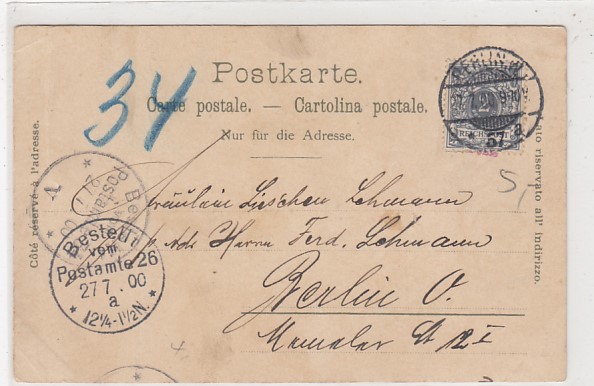 34
Postkarte.
Carte postale. — Cartolina postale.
Nur für die Adresse.
Côté réservé à l'adresse.
riservato all' Indirizzo.
BERLIN W.
9-10 V.
57 a
2
REICHSPOST
Bestellt
vom
Postamte 26
27 7. 00
a
12¼-1½N.
Fräulein Lieschen Lehmann
p. Adr. Herrn Ferd. Lehmann
Berlin O.
Memeler St 12 I